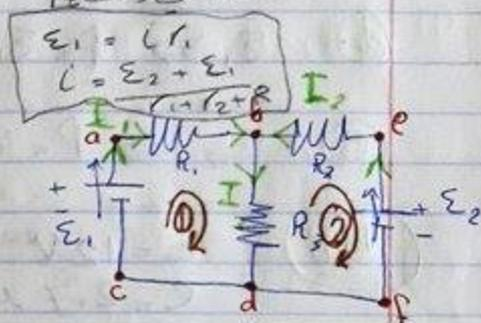 ε₁ = i r₁
i = ε₂ + ε₁
r₁ + r₂ + R
I₁ I₂
a b e
R₁ R₂
+ I + ε₂
- ε₁ 1 R₃ 2 -
c d f